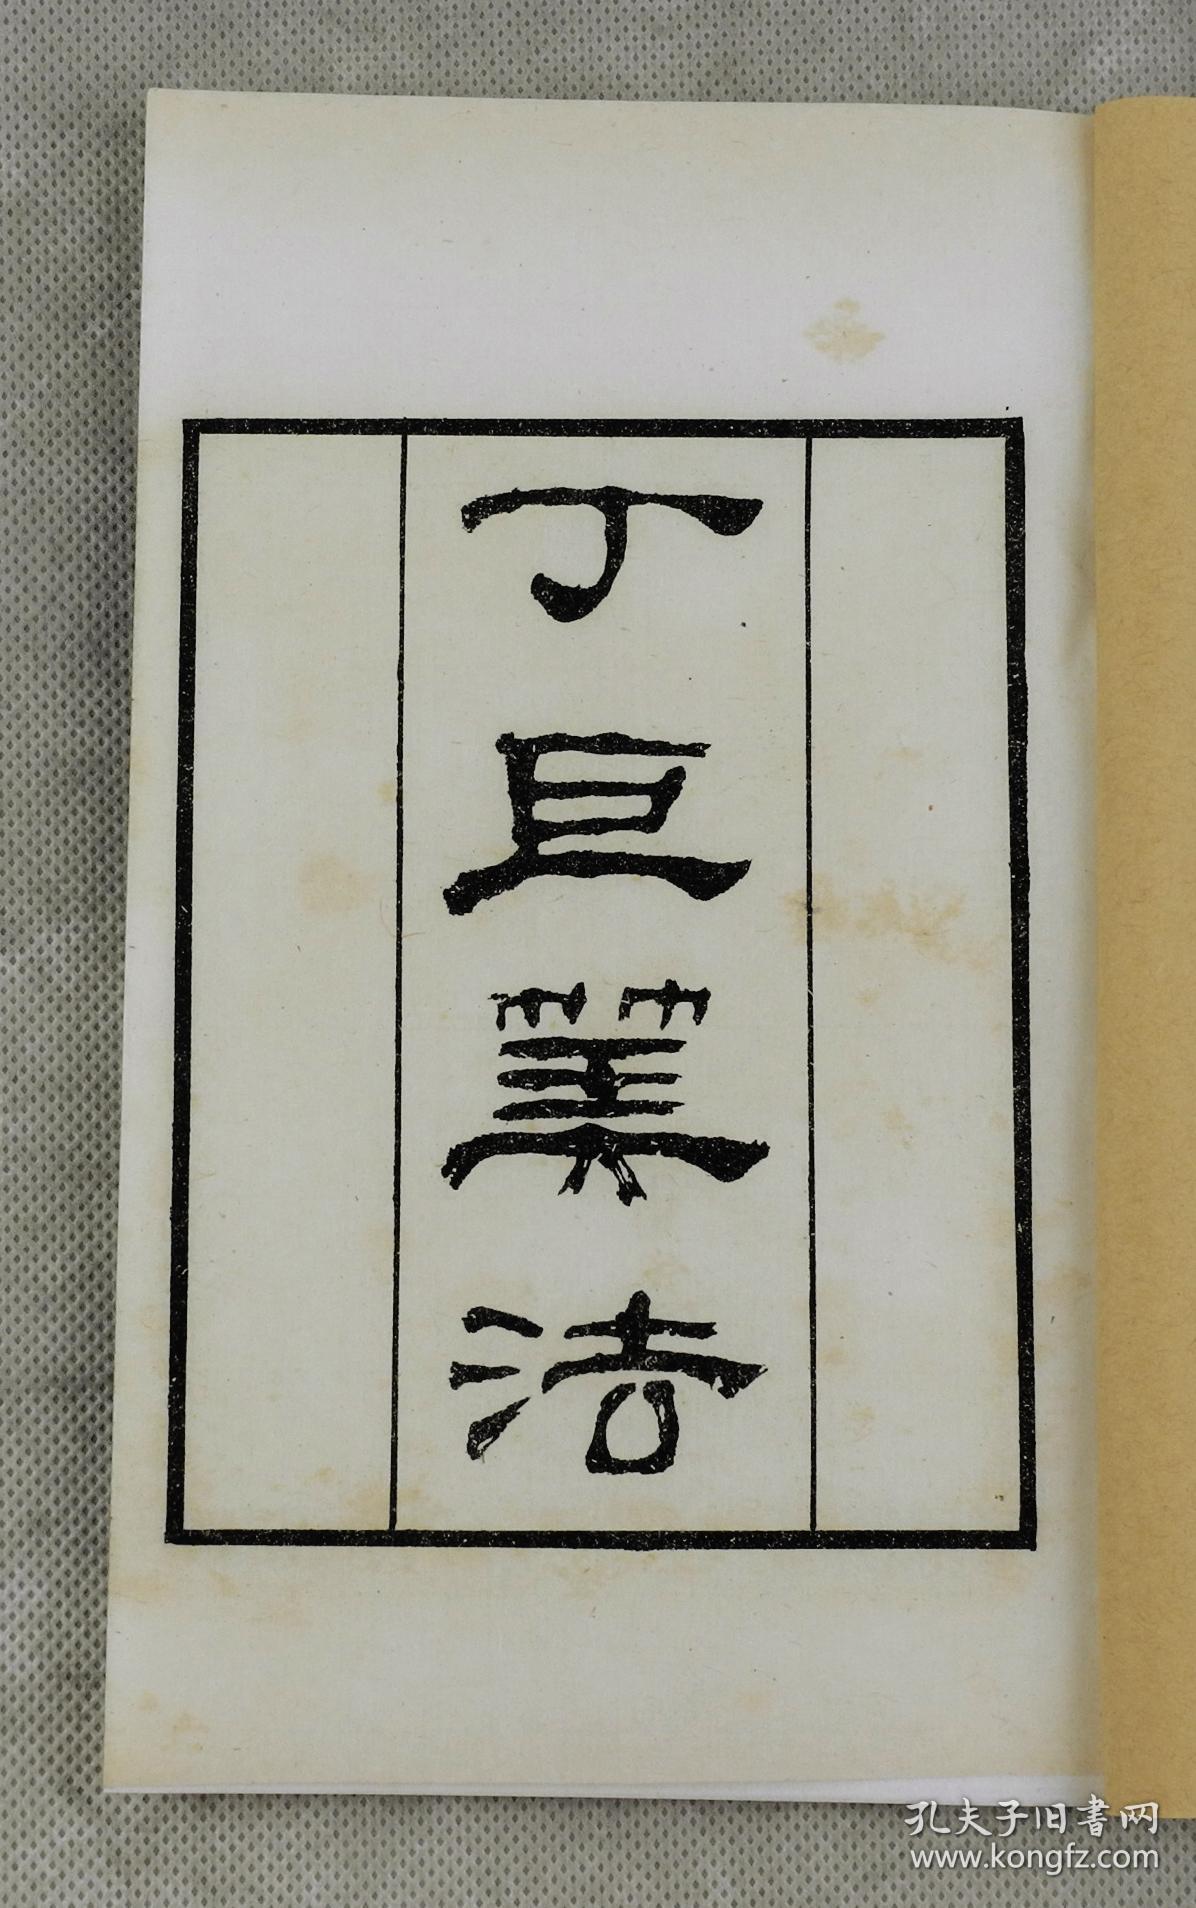 丁巨筭法
孔夫子旧書网
www.kongfz.com